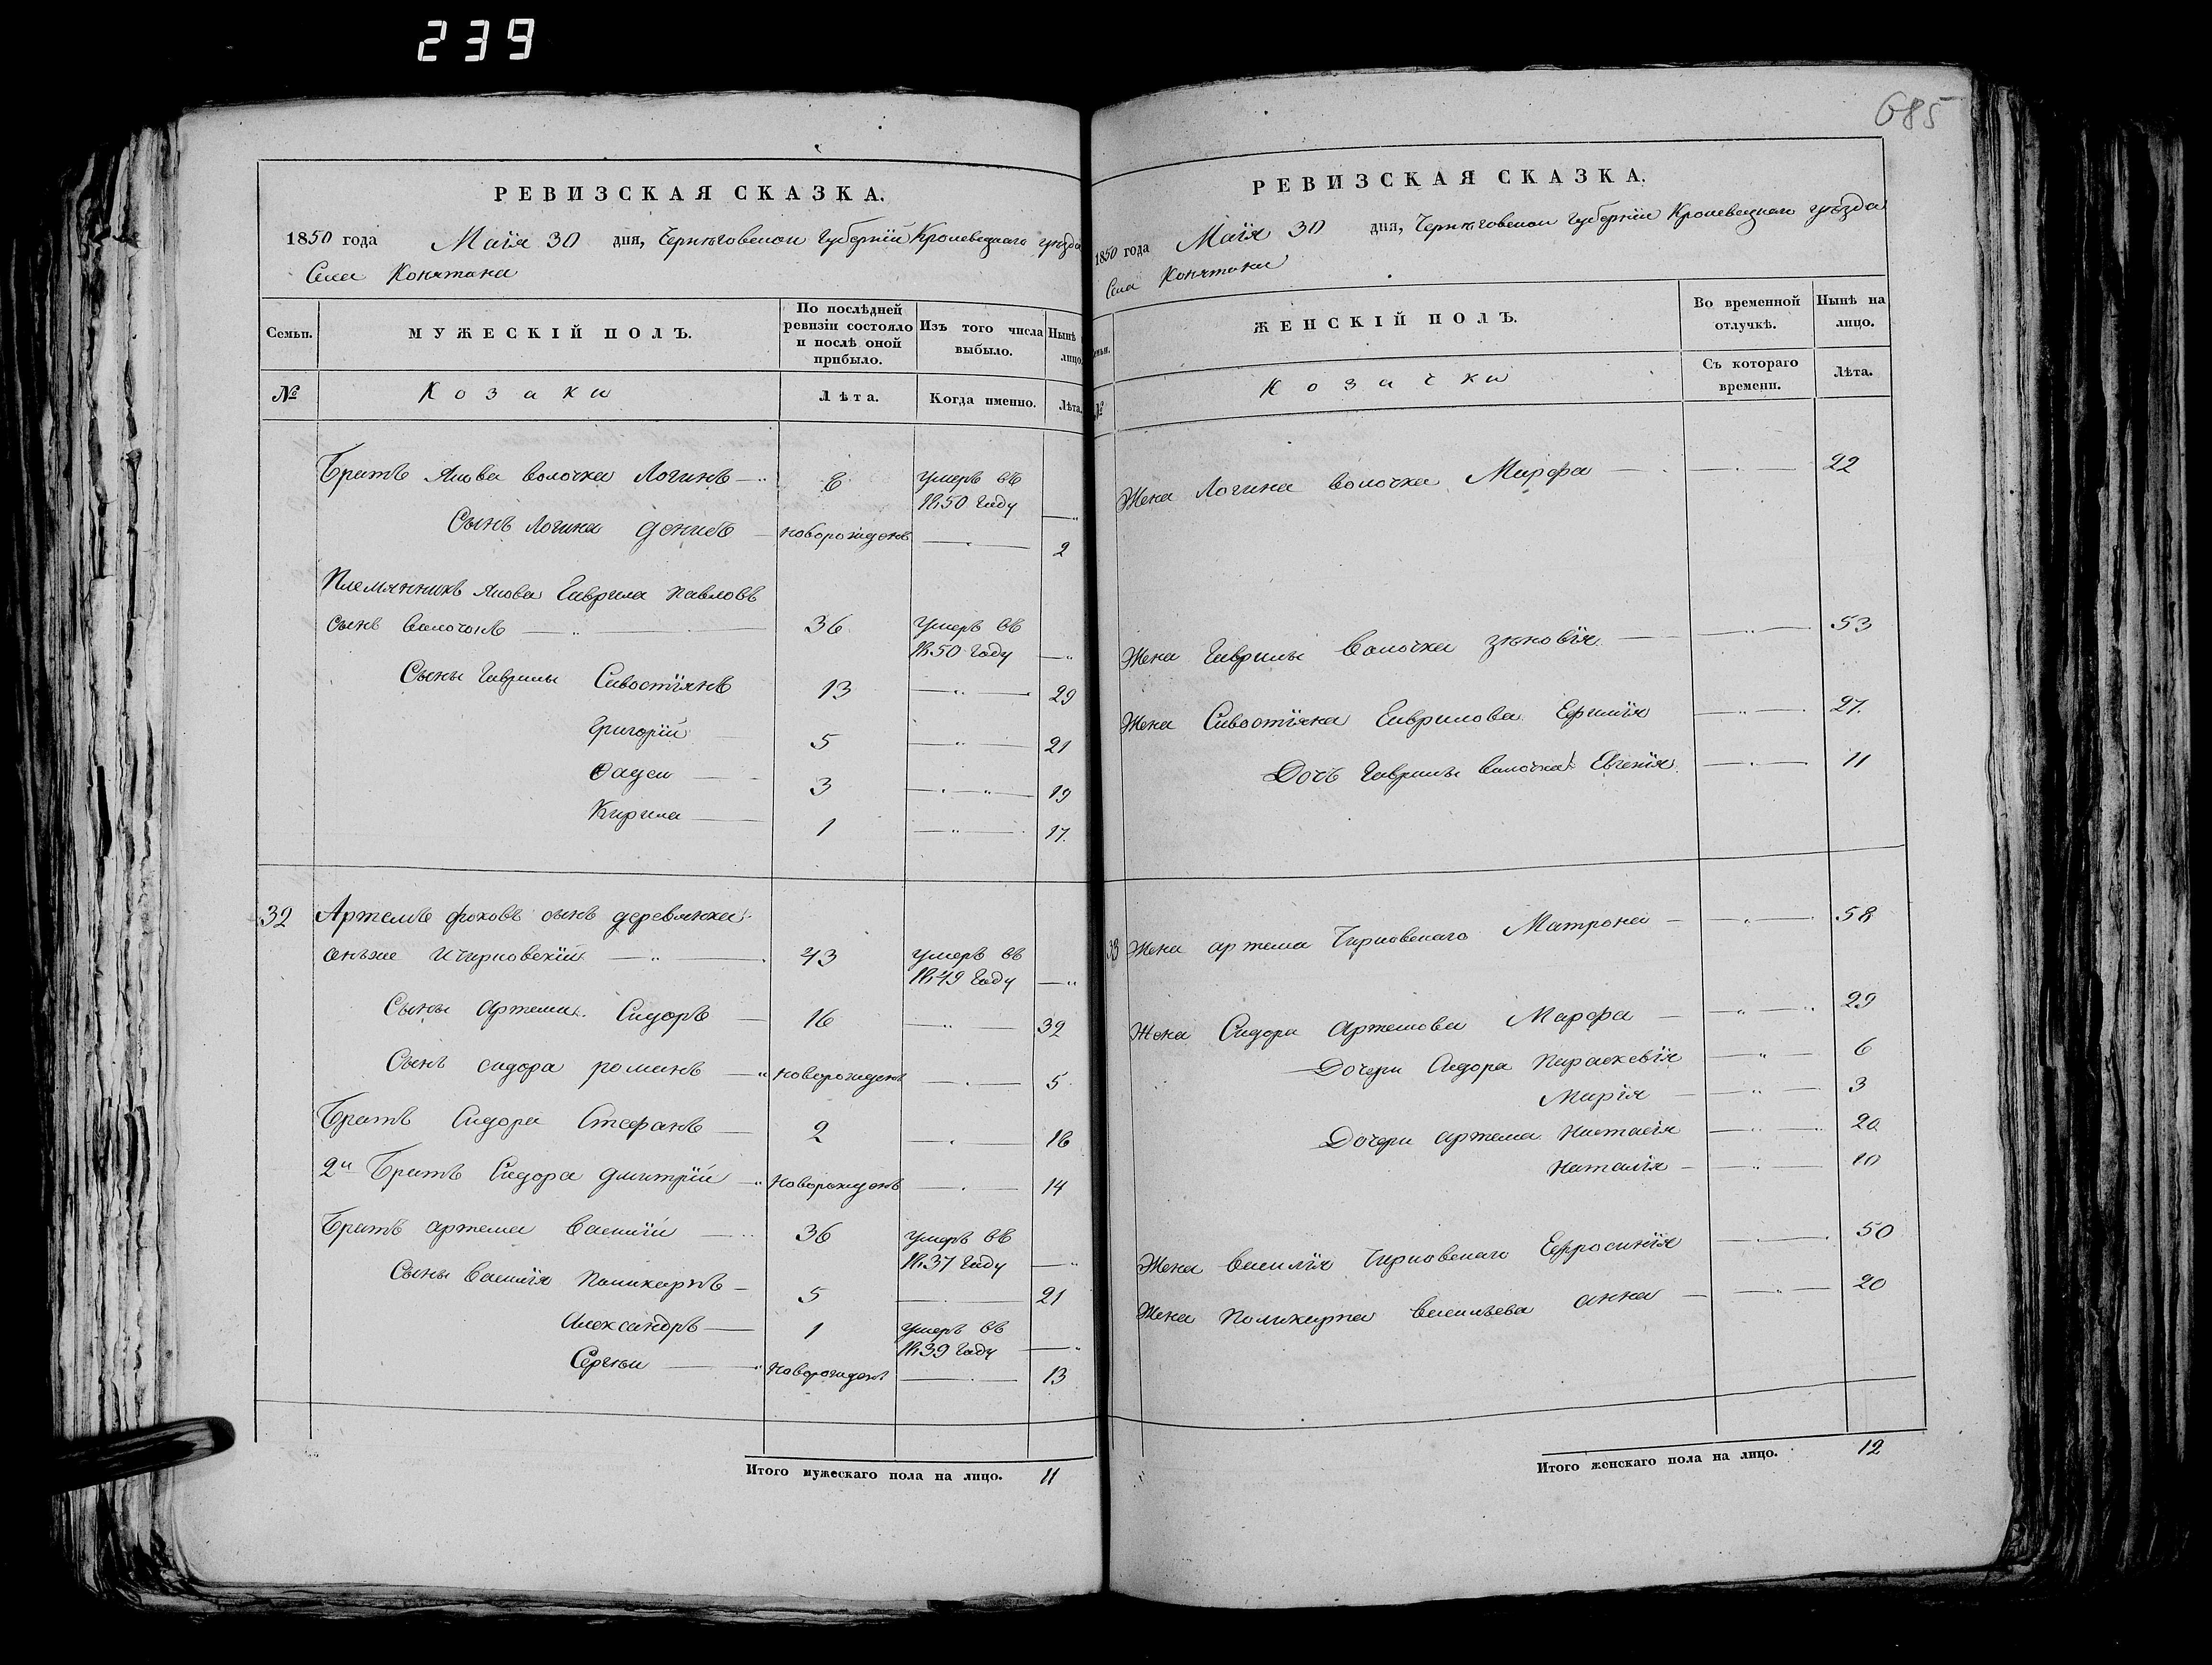 239
685
РЕВИЗСКАЯ СКАЗКА.
1850 года Маія 30 дня, Черниговской Губерніи Кролевецкаго уѣзда
Села Конятина
Семьи.
МУЖЕСКІЙ ПОЛЪ.
По послѣдней ревизіи состояло и послѣ оной прибыло.
Изъ того числа выбыло.
Нынѣ лицо.
№
Козаки
Лѣта.
Когда именно.
Лѣта.
Братъ Якова волочка Логинъ 8 умеръ въ
1850 Году
Сынъ Логина денисъ новорожденъ 2
Племянникъ Якова Гаврила павловъ
сынъ волочокъ 36 умеръ въ
1850 Году
Сыны Гаврилы Савостіянъ 13 29
Григорій 5 21
Фадеи 3 19
Кирила 1 17.
32 Артемъ фоковъ сынъ деревянка
онъже Ичирковскій 43 умеръ въ
1849 Году
Сыны артема. Сидоръ 16 32
Сынъ сидора романъ новорожденъ 5
Братъ Сидора Стефанъ 2 16
2й Братъ Сидора дмитрій новорожденъ 14
Братъ артема василій 36 умеръ въ
1837 Году
Сыны василія поликарпъ 5 21
Александръ 1 умеръ въ
1839 Году
Сергѣи новорожденъ 13
Итого мужескаго пола на лицо. 11
РЕВИЗСКАЯ СКАЗКА.
1850 года Маія 30 дня, Черниговской Губерніи Кролевецкаго уѣзда
Села Конятина
ЖЕНСКІЙ ПОЛЪ.
Во временной отлучкѣ.
Нынѣ на лицо.
№
Козачки
Съ котораго времени.
Лѣта.
Жена Логина волочка Марфа 22
Жена Гаврилы волочка зѣновія 53
Жена Савостіяна Гаврилова Ефимія 27.
Дочь Гаврилы волочка Евгенія 11
33 Жена артема Чирковскаго Матрона 58
Жена Сидора Артемова Марфа 29
Дочери Сидора параскевія 6
Марія 3
Дочери артема настасія 20
наталія 10
Жена василія Чирковскаго Ефросинія 50
Жена поликарпа васильева анна 20
Итого женскаго пола на лицо. 12